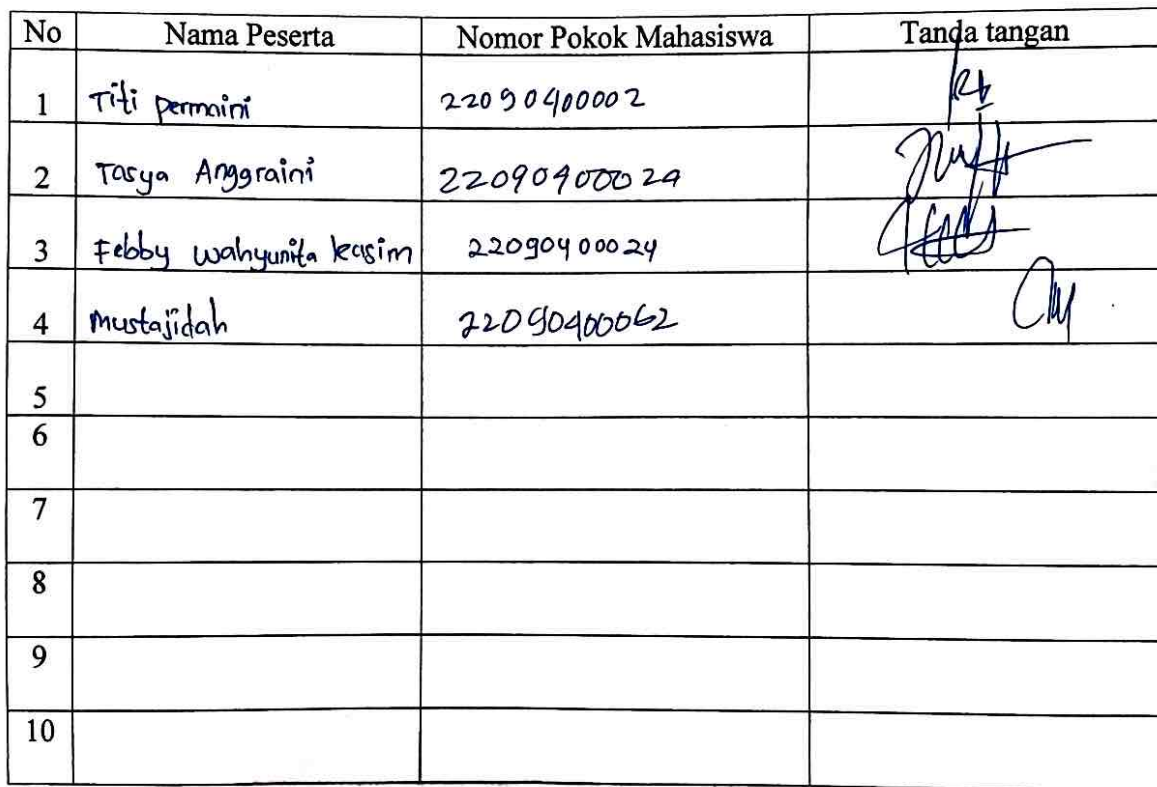 No Nama Peserta Nomor Pokok Mahasiswa Tanda tangan
1 Titi permaini 22090400002
2 Tasya Anggraini 22090400029
3 Febby wahyunita kasim 22090400024
4 Mustajidah 22090400062
5
6
7
8
9
10